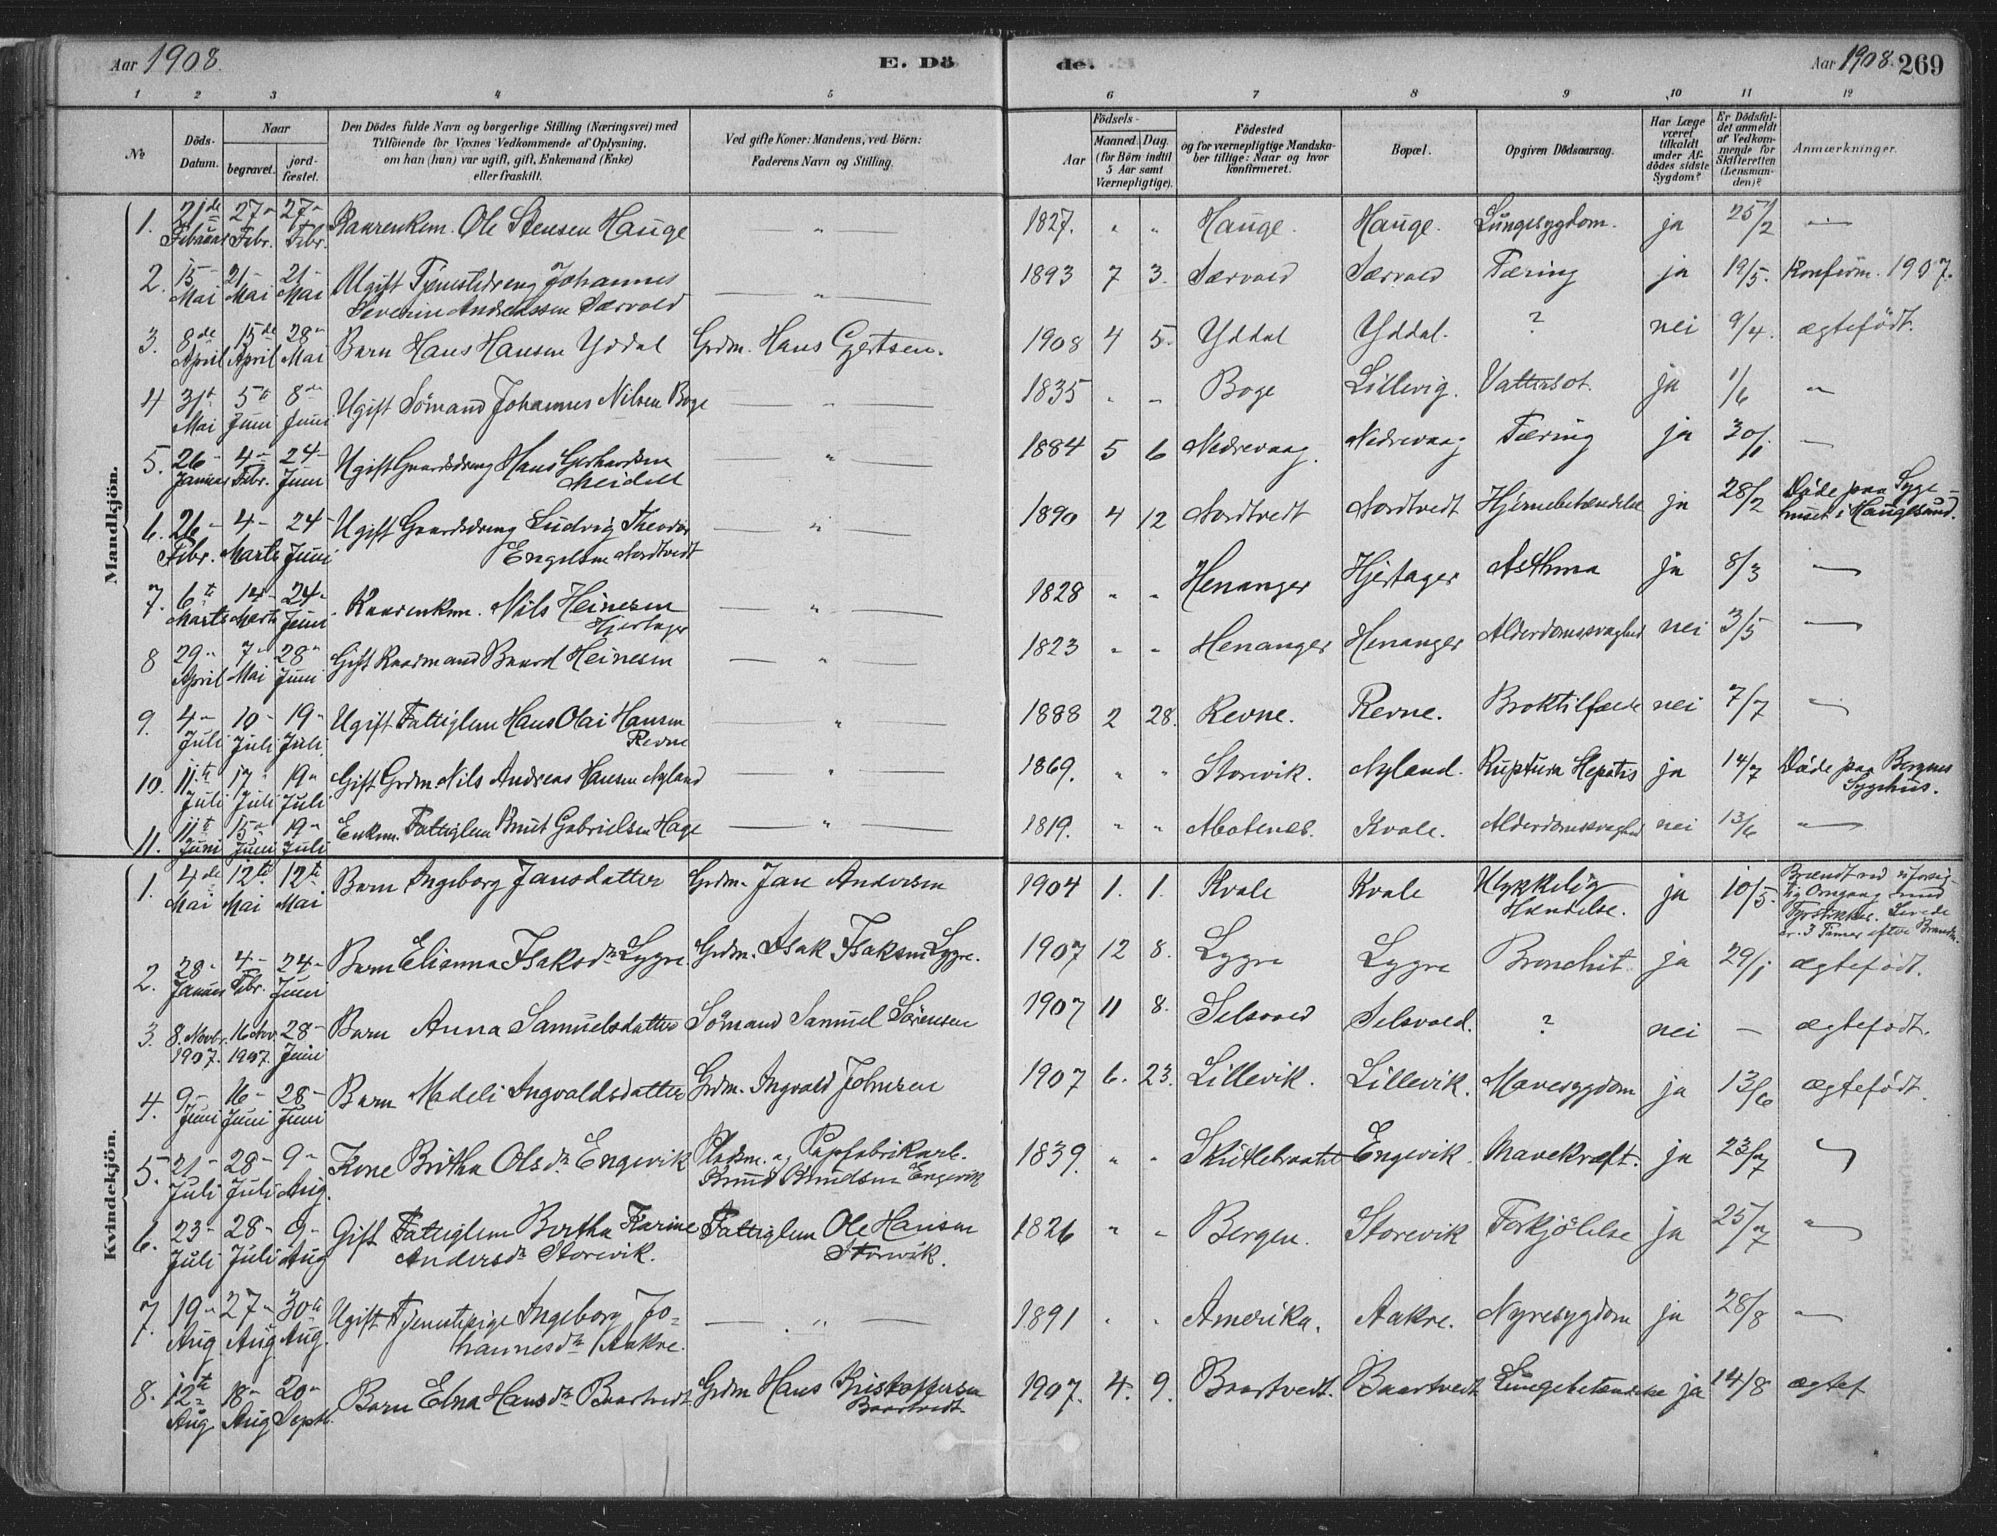 Aar 1908. E. Dö de. Aar 1908. 269
1 2 3 4 5 6 7 8 9 10 11 12
№ Döds-Datum. Naar begravet. jord-fæstet. Den Dödes fulde Navn og borgerlige Stilling (Næringsvei) med Tilföiende for Voxnes Vedkommende af Oplysning, om han (hun) var ugift, gift, Enkemand (Enke) eller fraskilt. Ved gifte Koner: Mandens, ved Börn: Faderens Navn og Stilling. Födsels- Aar Maaned. Dag. (for Börn indtil 5 Aar samt Værnepligtige). Födested og for værnepligtige Mandskaber tillige: Naar og hvor konfirmeret. Bopæl. Opgiven Dödsaarsag. Har Læge været tilkaldt under Afdödes sidste Sygdom? Er Dödsfaldet anmeldt af Vedkommende for Skifteretten (Lensmanden)? Anmærkninger.
Mandkjön.
1. 21de Februar 27- Febr. 27- Febr. Kaarenkem. Ole Stensen Hauge — " — 1827. " " Hauge. Hauge. Lungesygdom. ja 25/2 —
2. 15- Mai 21- Mai 21- Mai Ugift Tjenestedreng Johannes Severin Andreassen Særvold — " — 1893 7 3. Særvold Særvold Tæring ja 19/5. Konfirm. 1907.
3. 8de April 15de April 28- Mai Barn Hans Hansen Yddal Grdm. Hans Gjertsen. 1908 4 5. Yddal Yddal. ? nei 9/4. ægtefödt.
4 31t Mai 5te Juni 8de Juni Ugift Sömand Johannes Nilsen Boge — " — 1835 " " Boge Lillevig. Vattersot. ja 1/6 "
5. 26- Januar 4- Febr. 24- Juni Ugift Gaardsdreng Hans Gerhardsen Meidell — " — 1884 5 6 Nedrevaag. Nedrevaag Tæring ja 30/1 —
6. 26- Febr. 4- Marts 24- Juni Ugift Gaardsdreng Ludvig Theodor Engelsen Nordtvedt — " — 1890 4 12 Nordtvedt Nordtvedt Hjernebetændelse ja 28/2 Döde paa Sygehuset i Haugesund.
7. 6te Marts 14- Marts 24- Juni Kaarenkem. Nils Heinesen Hjertager — " — 1828 " " Henanger Hjertager Asthma ja 8/3 —
8 29- April 7- Mai 28- Juni Gift Kaarmand Baard Heinesen — " — 1823 " " Henanger Henanger Alderdomssvaghed nei 3/5 —
9. 4- Juli 10- Juli 19- Juli Ugift Fattiglem Hans Olai Hansen Revne " — 1888 2 28. Revne. Revne. Broktilfælde nei 7/7 —
10. 11te Juli 17- Juli 19- Juli Gift Grdm. Nils Andreas Hansen Nyland — " — 1869. " " Storevik. Nyland. Ruptura Hepatis ja 14/7 Döde paa Bergens Sygehus.
11. 11te Juni 15- Juni 19- Juli Enkm. Fattiglem Knut Gabrielsen Hage — " — 1819. " " Kvale. Alderdomssvaghed nei 13/6 "
Kvindekjön.
1. 4de Mai 12te Mai 12te Mai Barn Ingeborg Jansdatter Grdm. Jan Andersen 1904 1. 1. Kvale Kvale Ulykkelig Hændelse. ja 10/5. Brændt ved uforsigtig Omgang med Fyrstikker. Levede 3 Timer efter
2. 28- Januar 4- Febr. 24- Juni Barn Elianna Isaksdtr Lygre Grdm. Isak Isaksen Lygre. 1907 12 8. Lygre Lygre Bronchit. ja 29/1 ægtefödt.
3. 8. Novbr. 1907. 16 Nov. 1907. 28- Juni Barn Anna Samuelsdatter Sömand Samuel Sörensen 1907 11 8. Selsvold Selsvold. ? nei — ægtefödt.
4. 9- Juni 16- Juni 28- Juni Barn Madeli Ingvaldsdatter Grdm. Ingvald Johnsen 1907 6. 23. Lillevik. Lillevik. Mavesygdom ja 13/6 ægtefödt.
5. 21- Juli 28- Juli 9- Aug. Kone Britha Olsdtr Engevik Pladsm. og Papfabrikarb. Knud Knudsen Engevik 1839. " " Engevik Mavekræft. ja 23/7 "
6. 23- Juli 28- Juli 9- Aug Gift Fattiglem Bertha Karine Andersdtr Storevik. Fattiglem Ole Hansen Storevik. 1826 " " Bergen. Storevik Forkjölelse ja 25/7 "
7. 19- Aug 27- Aug 30te Aug. Ugift Tjenestepige Ingeborg Johannesdtr Aakre. — " — 1891 " " Amerika. Aakre. Nyresygdom ja 28/8 —
8. 12te Aug 18- Aug 20- Septb. Barn Elna Hansdtr Baartvedt Grdm Hans Kristoffersen Baartvedt 1907. 4. 9. Baartvedt. Baartvedt Lungebetændelse ja 14/8 ægtef